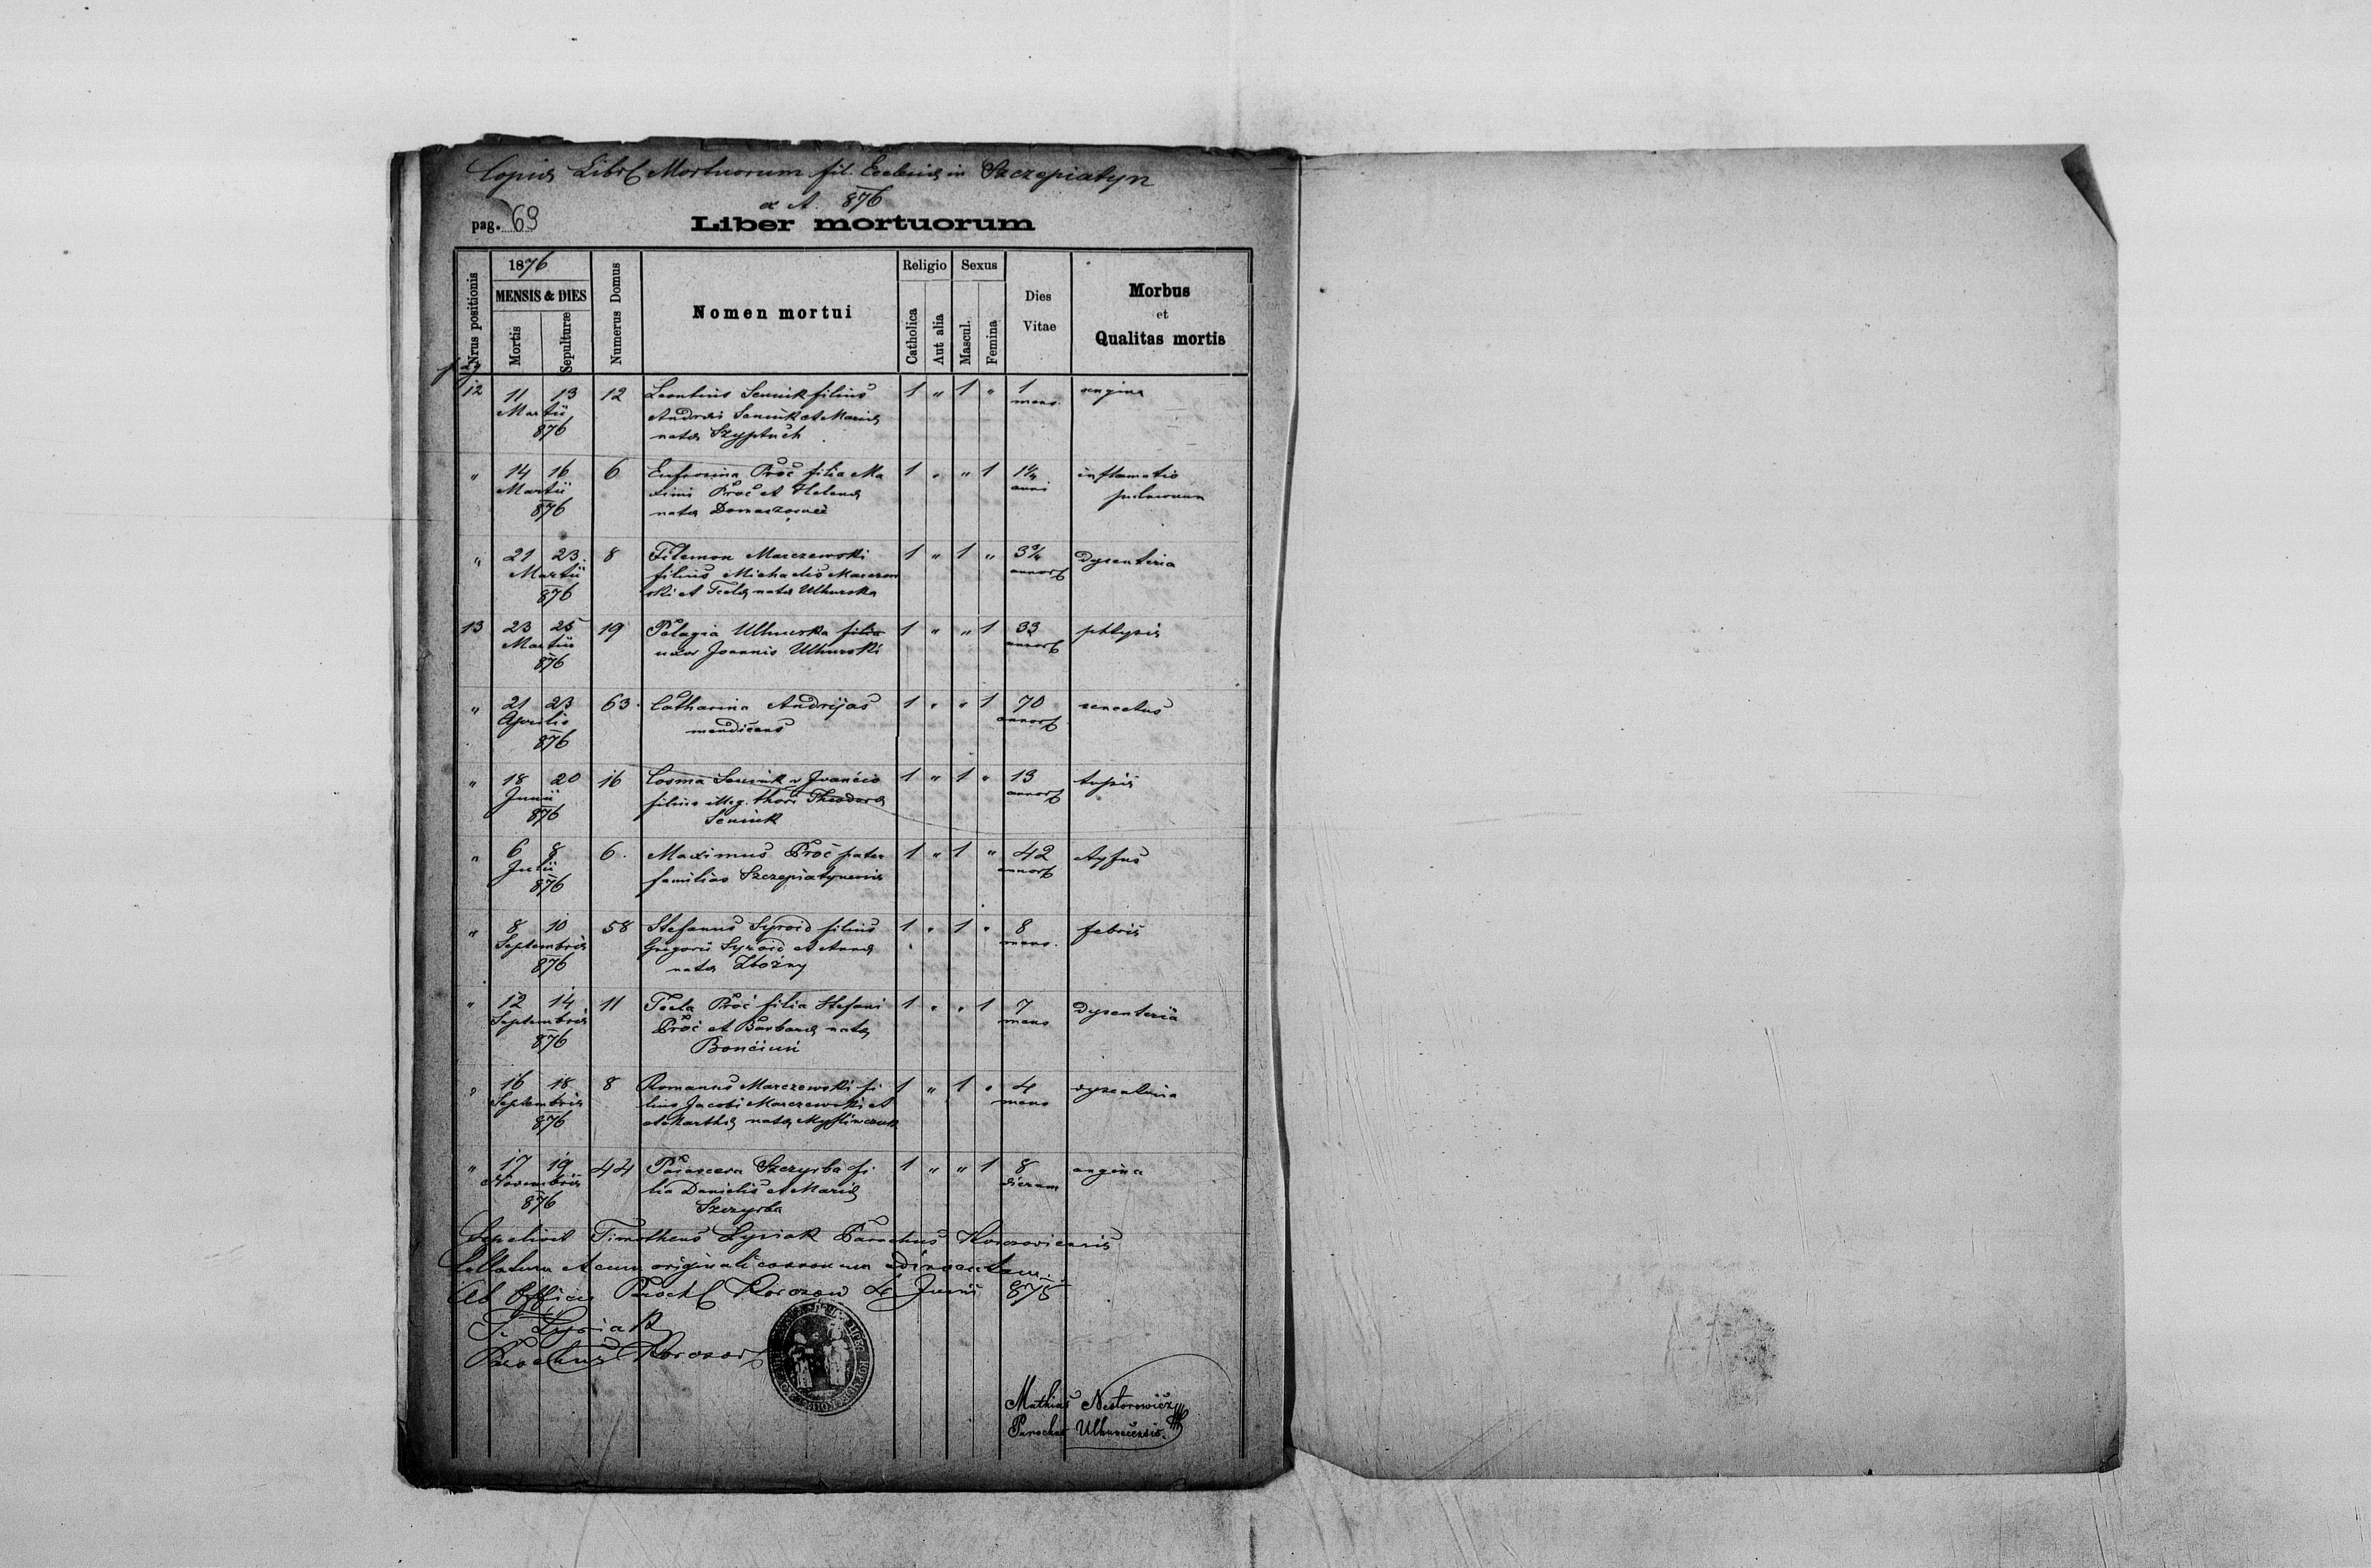 Copia Libr Mortuorum fil. Ecclesiæ in Szczepiatyn
ex A. 876
pag. 69 Liber mortuorum
Nrus positionis 1876 MENSIS & DIES Mortis Sepulturæ Numerus Domus Nomen mortui Religio Catholica Aut alia Sexus Mascul. Femina Dies Vitae Morbus et Qualitas mortis
pag
12 11 13 12 Leontius Seniuk filius 1 " 1 " 1 angina
Martii Andreæ Seniuk et Mariæ mens.
876 natæ Szyptuch
" 14 16 6 Eufrosina Proć filia Ma 1 " " 1 1¼ inflamatio
Martii ximi Proć et Helenæ anni pulmonum
876 natæ
" 21 23 8 Filemon Marczewski 1 " 1 " 3¾ Dysenteria
Martii filius Michaelis Marczew annor
876 ski et Teclæ natæ Uhnurska
13 23 25 19 Pelagia filia 1 " " 1 33 phtysis
Martii uxor Joannis annor
876
" 21 23 63 Catharina Andrijas 1 " " 1 70 senectus
Aprilis mendicans annor
876
" 18 20 16 Cosma Seniuk v Ivanćio 1 " 1 " 13 tussis
Junii filius illeg. thori Theodoræ annor
876 Seniuk
" 6 8 6 Maximus Proć pater 1 " 1 " 42 typus
Julii familias Szczepiatynensis annor
876
" 8 10 58 Stefanus Syroid filius 1 " 1 " 8 febris
Septembris Gregorii Syroid et Annæ mens.
876 natæ Zbożny
" 12 14 11 Tecla Proć filia Stefani 1 " " 1 7 Dysenteria
Septembris Proć et Barbaræ natæ mens
876 Bonćiuń
" 16 18 8 Romanus Marczewski fi 1 " 1 " 4 dysenteria
Septembris lius Jacobi Marczewski et mens
876 et Marthæ natæ
" 17 19 44 Parascera Szczyrba fi 1 " " 1 8 angina
Novembris lia Danielis et Mariæ dierum
876 Szczyrba
Sepelivit Timotheus Lysiak Parochus Korczoviensis
Collatum et cum originali consonum adinventum
Ab Officio Paroch Korczow Junii 875
T. Lysiak
Parochus Korczow
Mathias Nestorowicz
Parochus Uhnoviensis.